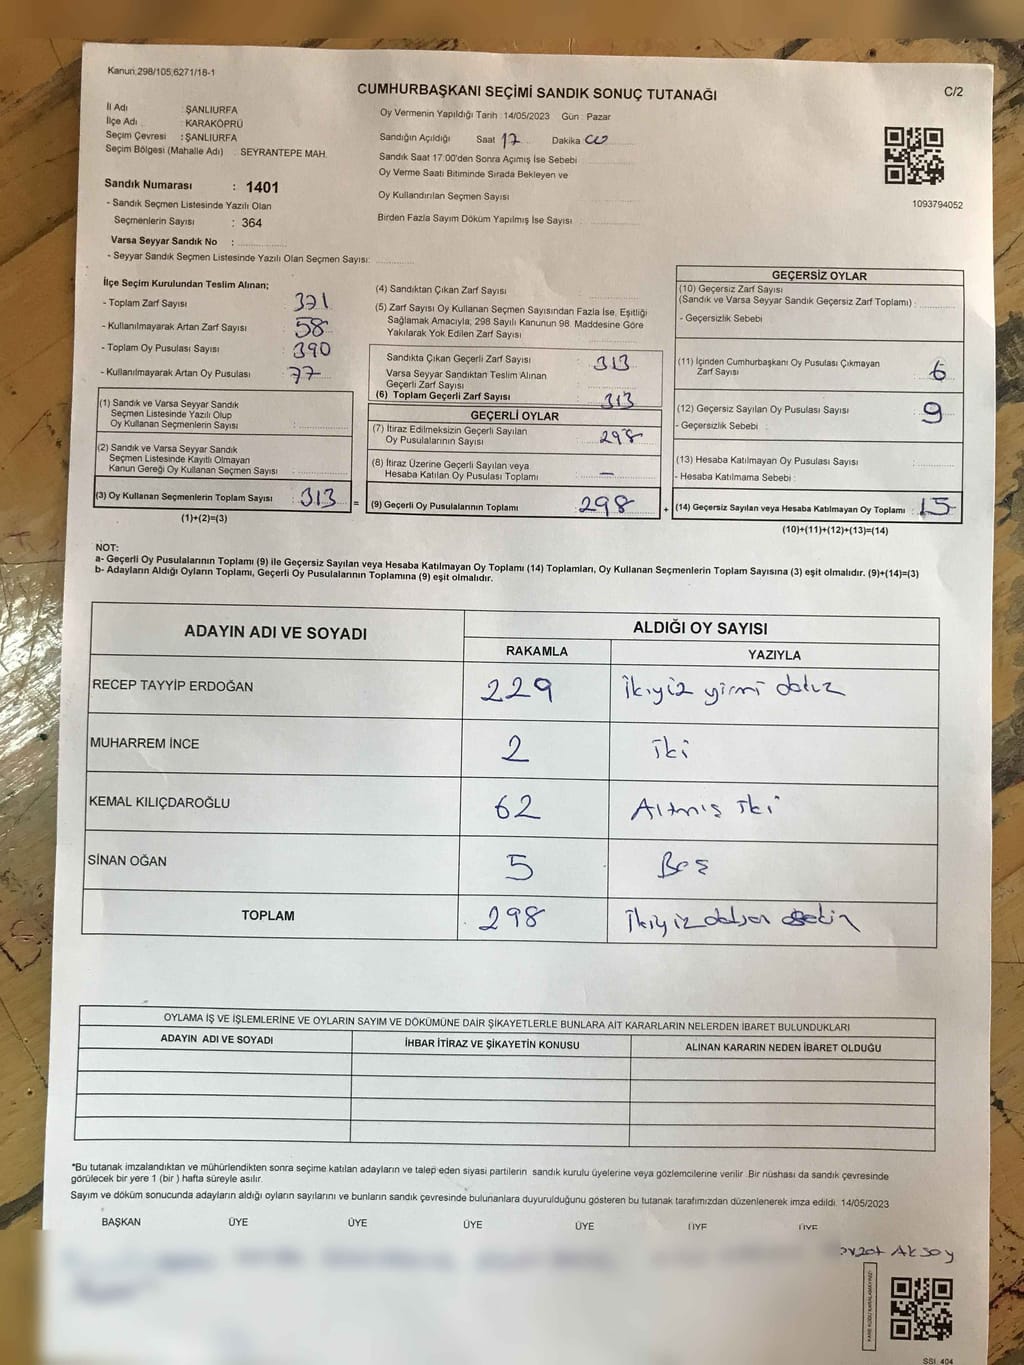 Kanun;298/105;6271/18-1
CUMHURBAŞKANI SEÇİMİ SANDIK SONUÇ TUTANAĞI
C/2
İl Adı : ŞANLIURFA
İlçe Adı : KARAKÖPRÜ
Seçim Çevresi : ŞANLIURFA
Seçim Bölgesi (Mahalle Adı) : SEYRANTEPE MAH.
Sandık Numarası : 1401
- Sandık Seçmen Listesinde Yazılı Olan
Seçmenlerin Sayısı : 364
Varsa Seyyar Sandık No :
- Seyyar Sandık Seçmen Listesinde Yazılı Olan Seçmen Sayısı:
Oy Vermenin Yapıldığı Tarih : 14/05/2023 Gün : Pazar
Sandığın Açıldığı Saat 17 Dakika 00
Sandık Saat 17:00'den Sonra Açımış İse Sebebi
Oy Verme Saati Bitiminde Sırada Bekleyen ve
Oy Kullandırılan Seçmen Sayısı
Birden Fazla Sayım Döküm Yapılmış İse Sayısı :
1093794052
İlçe Seçim Kurulundan Teslim Alınan;
- Toplam Zarf Sayısı : 371
- Kullanılmayarak Artan Zarf Sayısı : 58
- Toplam Oy Pusulası Sayısı : 390
- Kullanılmayarak Artan Oy Pusulası : 77
(1) Sandık ve Varsa Seyyar Sandık
Seçmen Listesinde Yazılı Olup
Oy Kullanan Seçmenlerin Sayısı :
(2) Sandık ve Varsa Seyyar Sandık
Seçmen Listesinde Kayıtlı Olmayan
Kanun Gereği Oy Kullanan Seçmen Sayısı :
(3) Oy Kullanan Seçmenlerin Toplam Sayısı : 313
(1)+(2)=(3)
=
(4) Sandıktan Çıkan Zarf Sayısı :
(5) Zarf Sayısı Oy Kullanan Seçmen Sayısından Fazla İse, Eşitliği
Sağlamak Amacıyla; 298 Sayılı Kanunun 98. Maddesine Göre
Yakılarak Yok Edilen Zarf Sayısı
Sandıkta Çıkan Geçerli Zarf Sayısı : 313
Varsa Seyyar Sandıktan Teslim Alınan
Geçerli Zarf Sayısı
(6) Toplam Geçerli Zarf Sayısı : 313
GEÇERLİ OYLAR
(7) İtiraz Edilmeksizin Geçerli Sayılan
Oy Pusulalarının Sayısı : 298
(8) İtiraz Üzerine Geçerli Sayılan veya
Hesaba Katılan Oy Pusulası Toplamı : —
(9) Geçerli Oy Pusulalarının Toplamı : 298
+
GEÇERSİZ OYLAR
(10) Geçersiz Zarf Sayısı
(Sandık ve Varsa Seyyar Sandık Geçersiz Zarf Toplamı) :
- Geçersizlik Sebebi
(11) İçinden Cumhurbaşkanı Oy Pusulası Çıkmayan
Zarf Sayısı : 6
(12) Geçersiz Sayılan Oy Pusulası Sayısı : 9
- Geçersizlik Sebebi :
(13) Hesaba Katılmayan Oy Pusulası Sayısı :
- Hesaba Katılmama Sebebi :
(14) Geçersiz Sayılan veya Hesaba Katılmayan Oy Toplamı : 15
(10)+(11)+(12)+(13)=(14)
NOT:
a- Geçerli Oy Pusulalarının Toplamı (9) ile Geçersiz Sayılan veya Hesaba Katılmayan Oy Toplamı (14) Toplamları, Oy Kullanan Seçmenlerin Toplam Sayısına (3) eşit olmalıdır. (9)+(14)=(3)
b- Adayların Aldığı Oyların Toplamı, Geçerli Oy Pusulalarının Toplamına (9) eşit olmalıdır.
ADAYIN ADI VE SOYADI ALDIĞI OY SAYISI
RAKAMLA YAZIYLA
RECEP TAYYİP ERDOĞAN 229 ikiyiz yirmi dokuz
MUHARREM İNCE 2 iki
KEMAL KILIÇDAROĞLU 62 Altmış iki
SİNAN OĞAN 5 Beş
TOPLAM 298 ikiyiz doksan
OYLAMA İŞ VE İŞLEMLERİNE VE OYLARIN SAYIM VE DÖKÜMÜNE DAİR ŞİKAYETLERLE BUNLARA AİT KARARLARIN NELERDEN İBARET BULUNDUKLARI
ADAYIN ADI VE SOYADI İHBAR İTİRAZ VE ŞİKAYETİN KONUSU ALINAN KARARIN NEDEN İBARET OLDUĞU
*Bu tutanak imzalandıktan ve mühürlendikten sonra seçime katılan adayların ve talep eden siyasi partilerin sandık kurulu üyelerine veya gözlemcilerine verilir. Bir nüshası da sandık çevresinde
görülecek bir yere 1 (bir ) hafta süreyle asılır.
Sayım ve döküm sonucunda adayların aldığı oyların sayılarını ve bunların sandık çevresinde bulunanlara duyurulduğunu gösteren bu tutanak tarafımızdan düzenlenerek imza edildi. 14/05/2023
BAŞKAN ÜYE ÜYE ÜYE ÜYE ÜYE ÜYE
Aksoy
SSI. 404